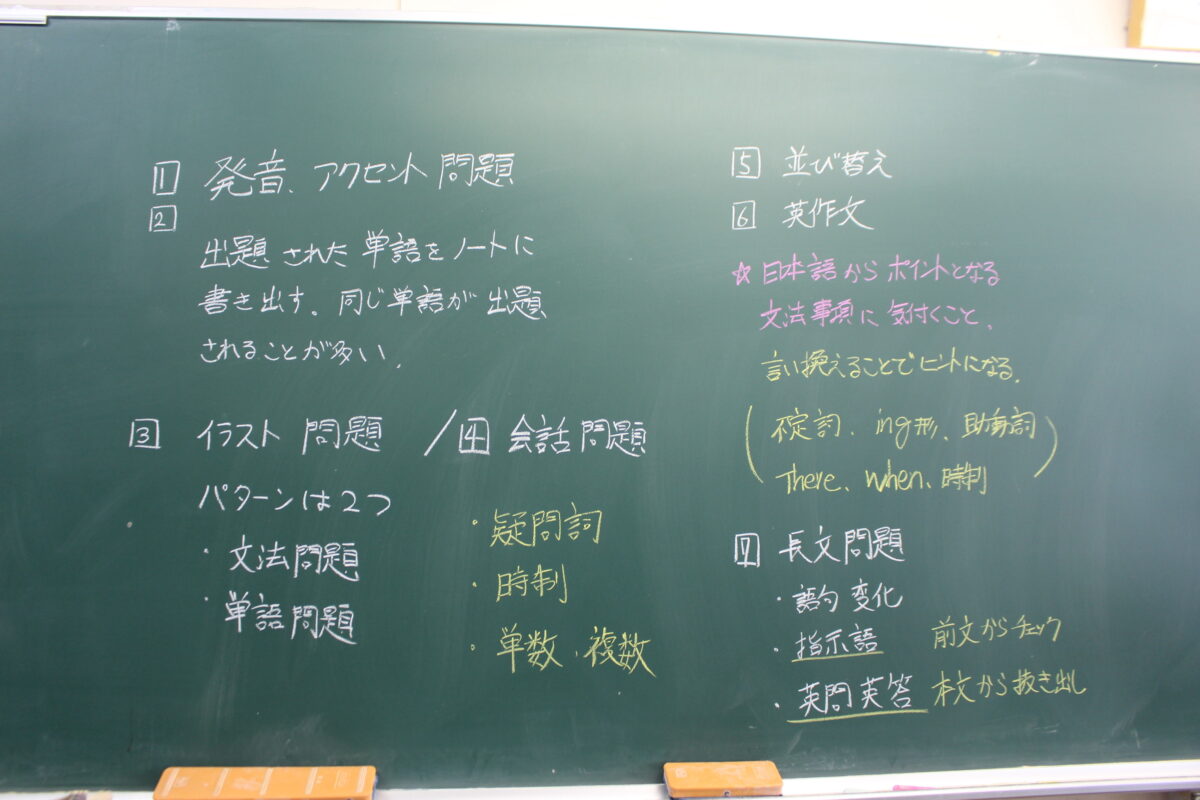 1 発音、アクセント問題
2
出題された単語をノートに
書き出す。同じ単語が出題
されることが多い.
3 イラスト問題 / 4 会話問題
パターンは2つ
・文法問題
・単語問題
・疑問詞
・時制
・単数、複数
5 並び替え
6 英作文
☆日本語からポイントとなる
文法事項に気付くこと.
言い換えることでヒントになる.
(不定詞、ing形、助動詞
There、when、時制)
7 長文問題
・語句変化
・指示語 前文からチェック
・英問英答 本文から抜き出し